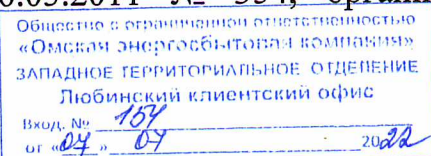 0.05.2011 № 354, органи
Общество с ограниченной ответственностью
«Омская энергосбытовая компания»
ЗАПАДНОЕ ТЕРРИТОРИАЛЬНОЕ ОТДЕЛЕНИЕ
Любинский клиентский офис
Вход. № 154
от «07» 07 2022